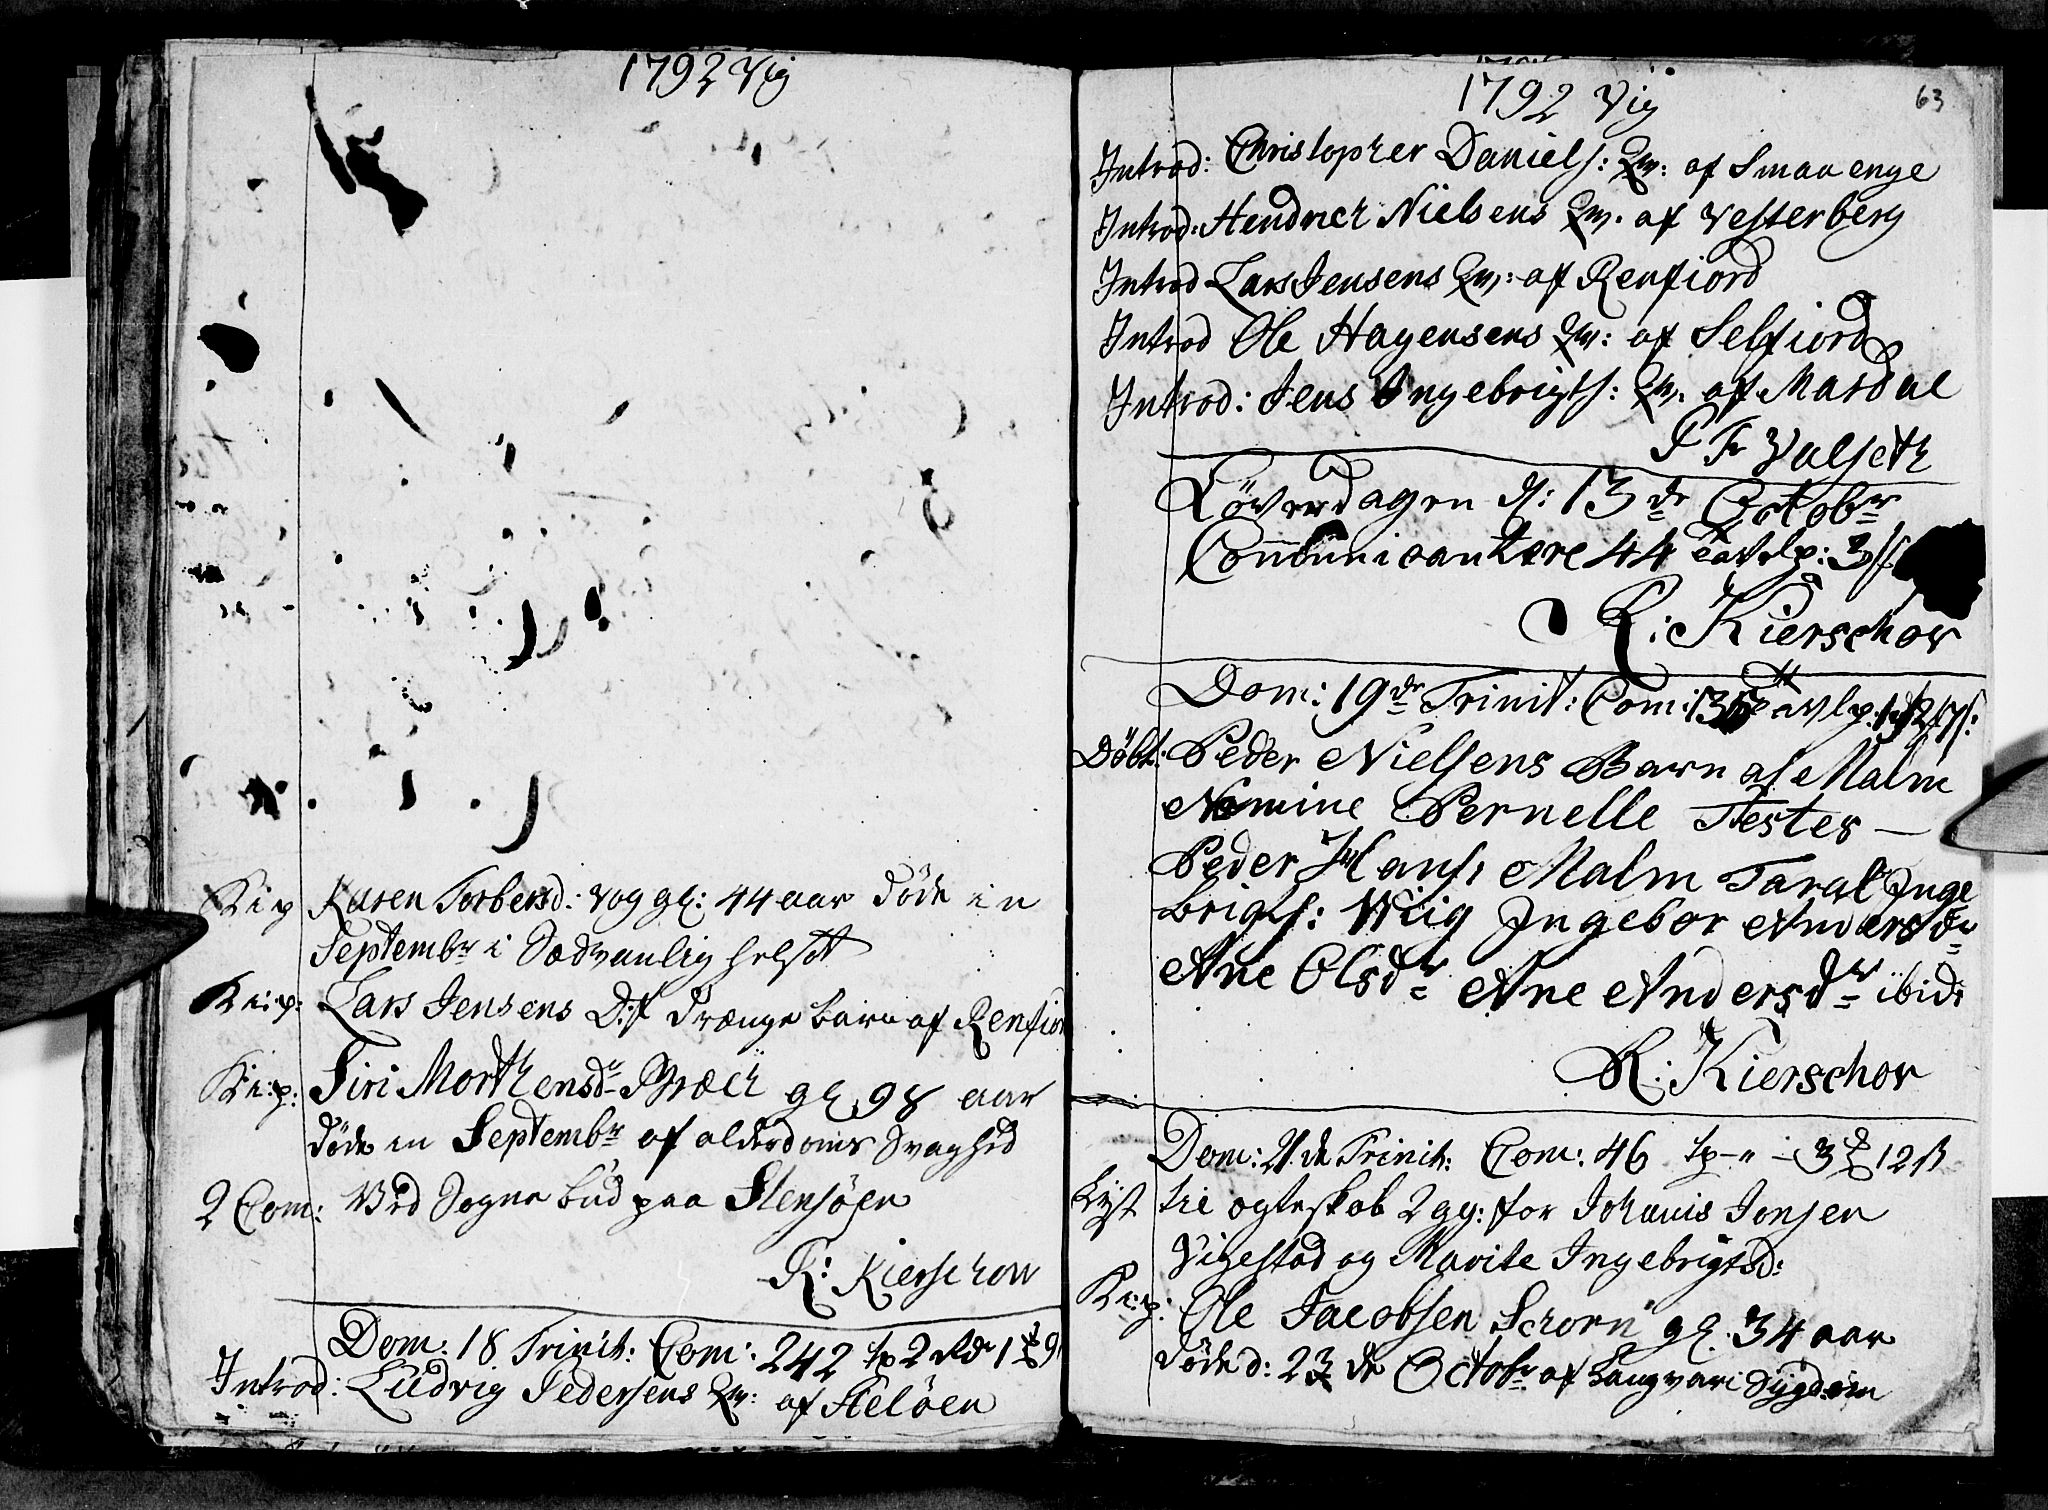 1792 Vig
K: i: p Karen Torbersd: Vog gl: 44 aar døde in
Septembr i Sædvanlig
K: i: p: Lars Jensens D: f Drænge barn af Renfior
K: i: p: Siri Morthensdr Bræch gl 98 aar
døde in Septembr af alderdoms Svaghed
2 Com: Ved Sogne bud paa Stensøen
R: Kierschow
Dom: 18 Trinit: Com: 242 tp 2 Rdr 1
Introd: Ludvig Pedersens Qv: af Heløen
1792 Vig
63
Introd: Christopher Daniels: Qv: af Smaaenge
Introd: Hendrich Nielsens Qv. af Vesterberg
Introd Lars Jensens Qv: af Renfiord
Introd Ole Hagensens Qv: af Selfiord
Introd: Jens Ingebrigts: Qv. af Mardal
P Fr Valseth
Løverdagen d: 13de Octobr
Communicantere 44 tavlp: 3
R: Kierschow
Dom: 19de Trinit: Com: 135 tavlp:
Døbt: Peder Nielsens Barn af Malm
Nomine Pernelle Testes —
Peder Hans: Malm Taral Inge
brigts: Wiig Ingebor Andersdr
Ane Olsdr Ane Andersdr ibid:
R: Kierschow
Dom: 21 de Trinit: Com: 46 tp - " - 3 12 ß
Lyst til ægteskab 2 gg: for Johanis Jonsen
Vigestad og Marite Ingebrigtsd:
K: i: p: Ole Jacobsen Schorn gl. 34 aar
døde d: 23 de Octobr af Langvari Sygdom